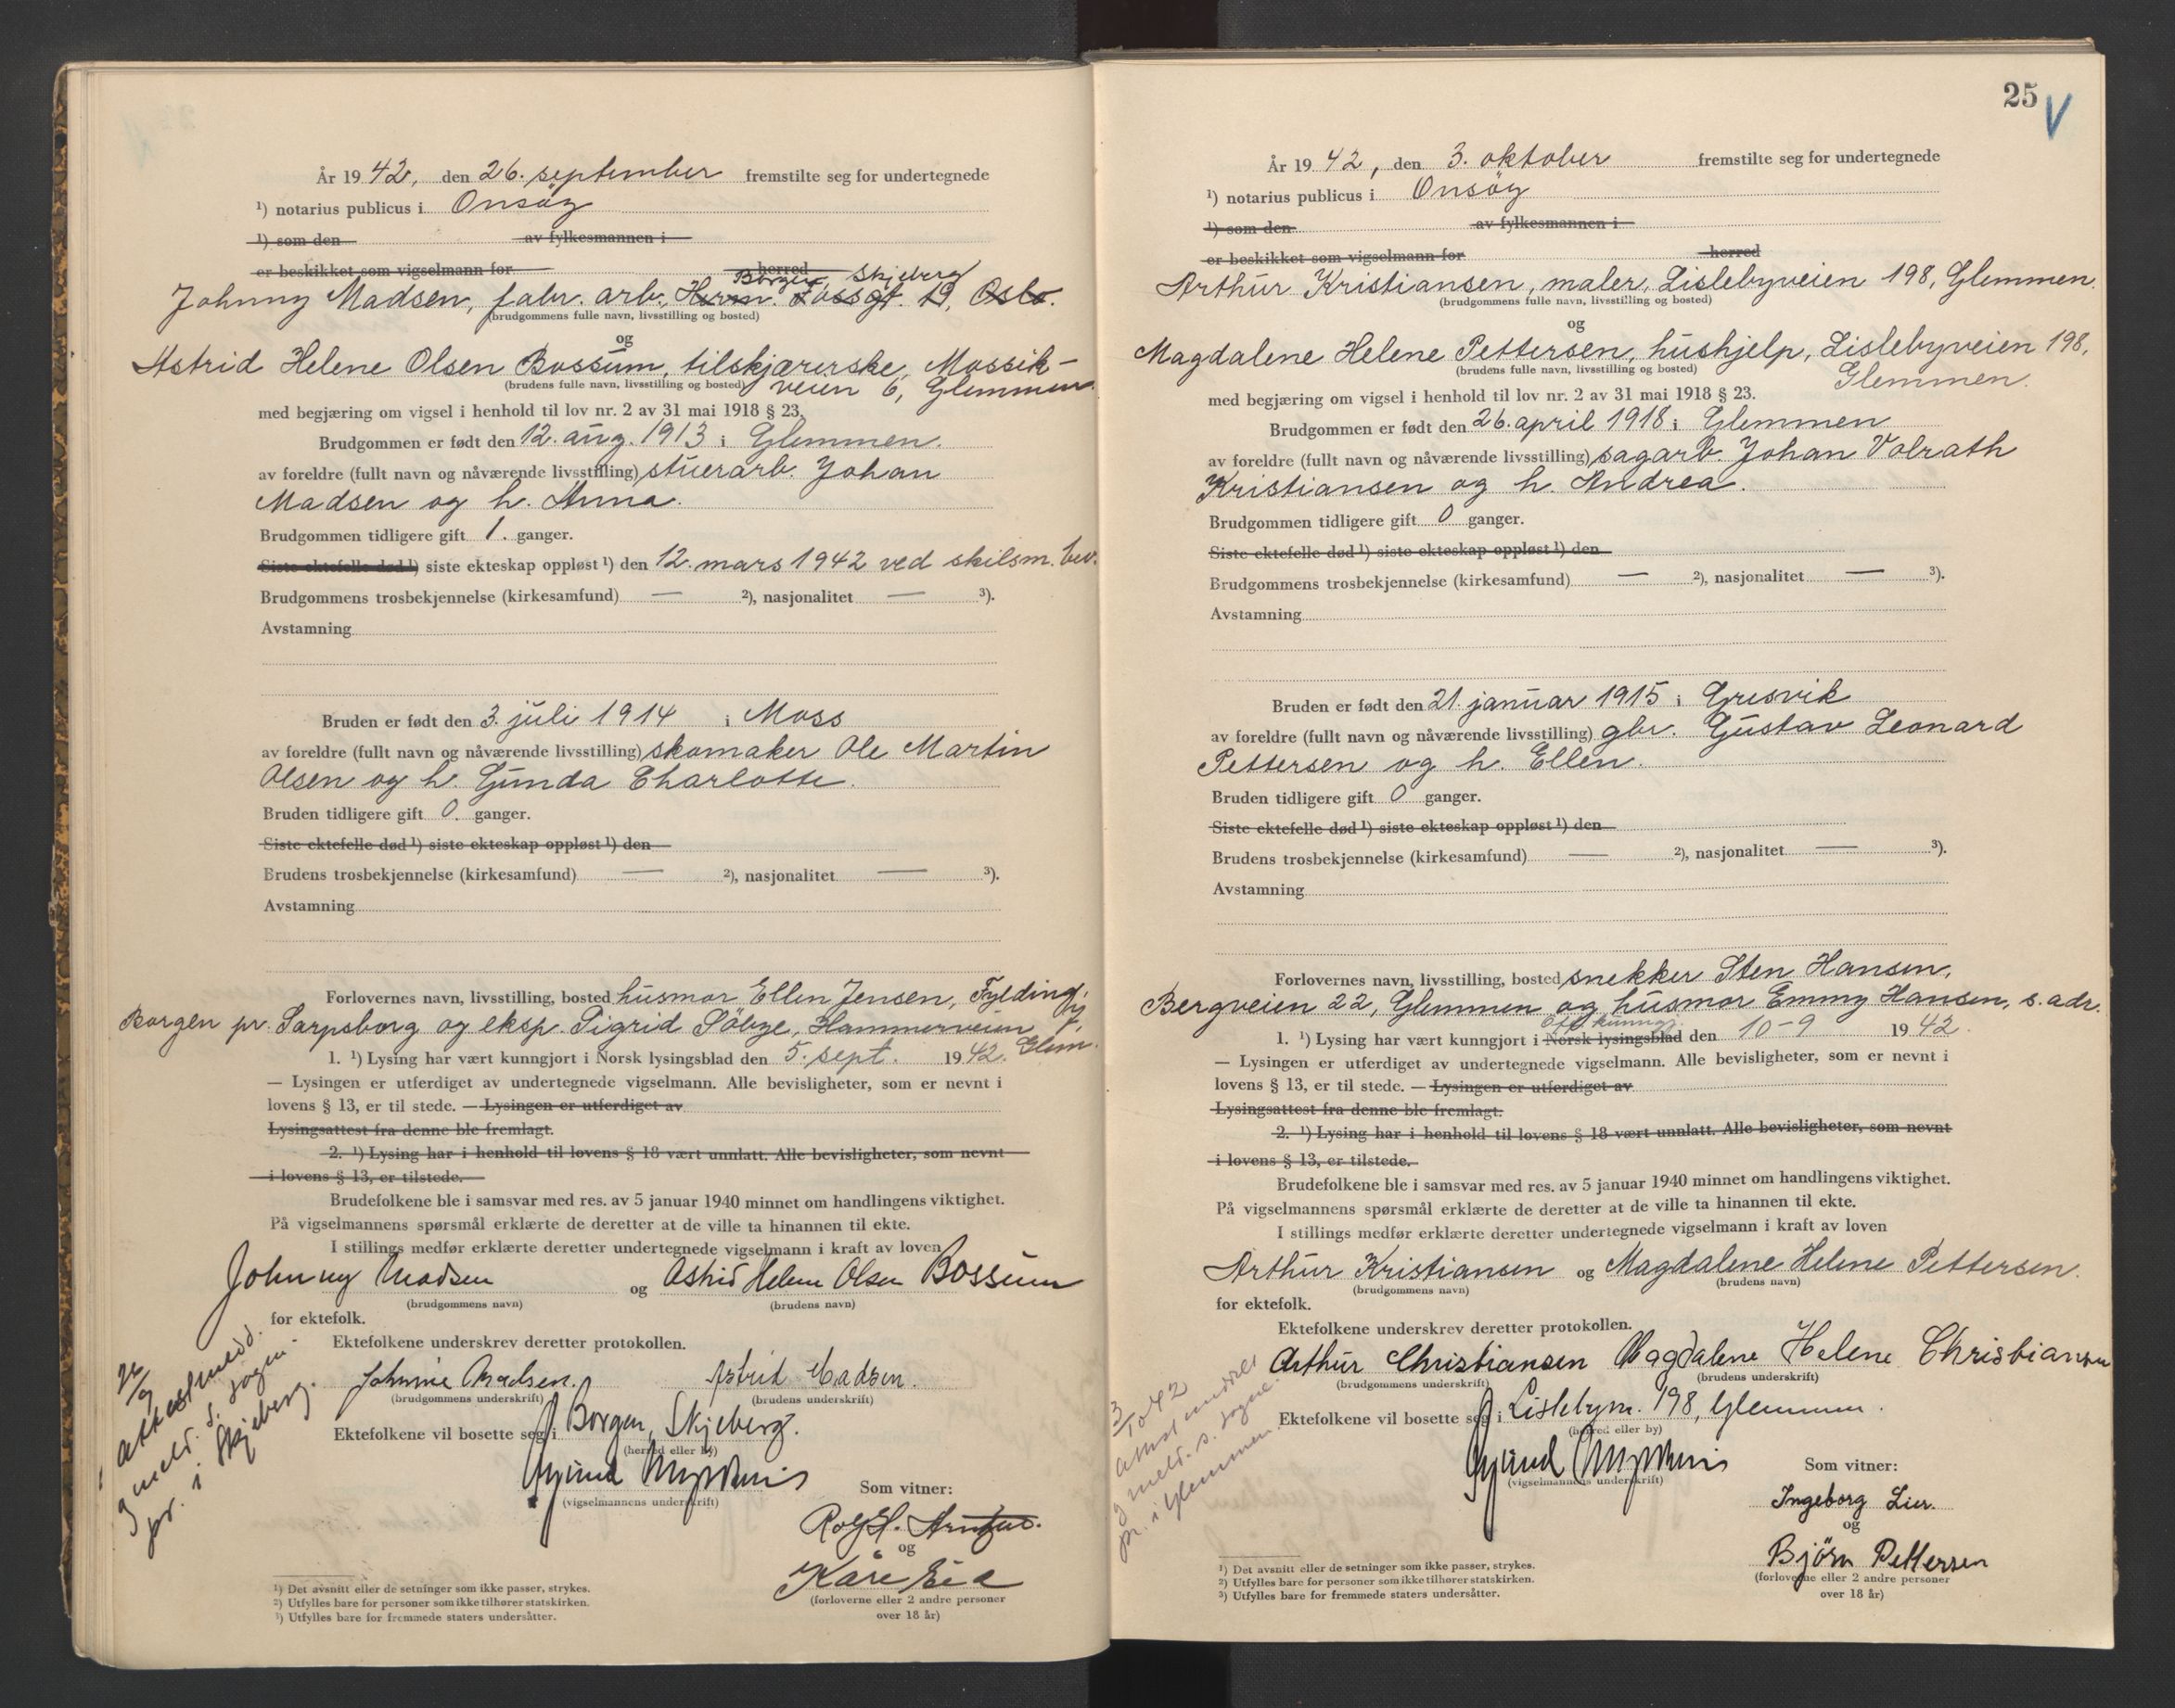 År 1942, den 26. september fremstilte seg for undertegnede
¹) notarius publicus i Onsöy
¹) som den av fylkesmannen i
er beskikket som vigselmann for herred
Borgen, Skjeberg
Johnny Madsen, fabr. arb., Herm. Fossgt. 19, Oslo.
(brudgommens fulle navn, livsstilling og bosted)
og
Astrid Helene Olsen Bossum, tilskjærerske, Mossik-
(brudens fulle navn, livsstilling og bosted) veien 6, Glemmen.
med begjæring om vigsel i henhold til lov nr. 2 av 31 mai 1918 § 23.
Brudgommen er født den 12. aug. 1913 i Glemmen.
av foreldre (fullt navn og nåværende livsstilling) stuerarb. Johan
Madsen og h. Anna.
Brudgommen tidligere gift 1. ganger.
Siste ektefelle død ¹) siste ekteskap oppløst ¹) den 12. mars 1942 ved skilsm. bev.
Brudgommens trosbekjennelse (kirkesamfund) — ²), nasjonalitet — ³).
Avstamning
Bruden er født den 3. juli 1914 i Moss
av foreldre (fullt navn og nåværende livsstilling) skomaker Ole Martin
Olsen og h. Gunda Charlotte.
Bruden tidligere gift 0. ganger.
Siste ektefelle død ¹) siste ekteskap oppløst ¹) den
Brudens trosbekjennelse (kirkesamfund) — ²), nasjonalitet — ³).
Avstamning
Forlovernes navn, livsstilling, bosted husmor Ellen Jensen,
Borgen pr. Sarpsborg og eksp. Sigrid Hammerveien
Glem.
1. ¹) Lysing har vært kunngjort i Norsk lysingsblad den 5. sept. 1942.
— Lysingen er utferdiget av undertegnede vigselmann. Alle bevisligheter, som er nevnt i
lovens § 13, er til stede. — Lysingen er utferdiget av
Lysingsattest fra denne ble fremlagt.
2. ¹) Lysing har i henhold til lovens § 18 vært unnlatt. Alle bevisligheter, som nevnt
i lovens § 13, er tilstede.
Brudefolkene ble i samsvar med res. av 5 januar 1940 minnet om handlingens viktighet.
På vigselmannens spørsmål erklærte de deretter at de ville ta hinannen til ekte.
I stillings medfør erklærte deretter undertegnede vigselmann i kraft av loven
Johnny Madsen og Astrid Helene Olsen Bossum
(brudgommens navn) (brudens navn)
for ektefolk.
Ektefolkene underskrev deretter protokollen.
Johnnie Madsen. Astrid Madsen.
(brudgommens underskrift) (brudens underskrift)
Ektefolkene vil bosette seg i Borgen, Skjeberg.
(herred eller by)
(vigselmannens underskrift)
Som vitner:
Rolf H.
og
Kåre Eia
(forloverne eller 2 andre personer
over 18 år)
26/9
attest
meld. s. sogne-
pr. i Skjeberg.
¹) Det avsnitt eller de setninger som ikke passer, strykes.
²) Utfylles bare for personer som ikke tilhører statskirken.
³) Utfylles bare for fremmede staters undersåtter.
25 V
År 1942, den 3. oktober fremstilte seg for undertegnede
¹) notarius publicus i Onsöy
¹) som den av fylkesmannen i
er beskikket som vigselmann for herred
Arthur Kristiansen, maler, Lislebyveien 198, Glemmen.
(brudgommens fulle navn, livsstilling og bosted)
og
Magdalene Helene Pettersen, hushjelp, Lislebyveien 198,
(brudens fulle navn, livsstilling og bosted) Glemmen.
med begjæring om vigsel i henhold til lov nr. 2 av 31 mai 1918 § 23.
Brudgommen er født den 26. april 1918 i Glemmen
av foreldre (fullt navn og nåværende livsstilling) sagarb. Johan Volrath
Kristiansen og h. Andrea.
Brudgommen tidligere gift 0 ganger.
Siste ektefelle død ¹) siste ekteskap oppløst ¹) den
Brudgommens trosbekjennelse (kirkesamfund) — ²), nasjonalitet — ³).
Avstamning
Bruden er født den 21. januar 1915 i Gresvik
av foreldre (fullt navn og nåværende livsstilling) gbr. Gustav Leonard
Pettersen og h. Ellen.
Bruden tidligere gift 0 ganger.
Siste ektefelle død ¹) siste ekteskap oppløst ¹) den
Brudens trosbekjennelse (kirkesamfund) — ²), nasjonalitet — ³).
Avstamning
Forlovernes navn, livsstilling, bosted snekker Sten Hansen,
Bergveien 22, Glemmen og husmor Emmy Hansen, s. adr.
Off. kunngj.
1. ¹) Lysing har vært kunngjort i Norsk lysingsblad den 10-9 1942.
— Lysingen er utferdiget av undertegnede vigselmann. Alle bevisligheter, som er nevnt i
lovens § 13, er til stede. — Lysingen er utferdiget av
Lysingsattest fra denne ble fremlagt.
2. ¹) Lysing har i henhold til lovens § 18 vært unnlatt. Alle bevisligheter, som nevnt
i lovens § 13, er tilstede.
Brudefolkene ble i samsvar med res. av 5 januar 1940 minnet om handlingens viktighet.
På vigselmannens spørsmål erklærte de deretter at de ville ta hinannen til ekte.
I stillings medfør erklærte deretter undertegnede vigselmann i kraft av loven
Arthur Kristiansen og Magdalene Helene Pettersen.
(brudgommens navn) (brudens navn)
for ektefolk.
Ektefolkene underskrev deretter protokollen.
Arthur Christiansen Magdalene Helene Christiansen
(brudgommens underskrift) (brudens underskrift)
Ektefolkene vil bosette seg i Lislebyv. 198, Glemmen.
(herred eller by)
(vigselmannens underskrift)
Som vitner:
Ingeborg Lier.
og
Björn Pettersen
(forloverne eller 2 andre personer
over 18 år)
3/10 42
attest
meld. s. sogne-
pr. i Glemmen.
¹) Det avsnitt eller de setninger som ikke passer, strykes.
²) Utfylles bare for personer som ikke tilhører statskirken.
³) Utfylles bare for fremmede staters undersåtter.